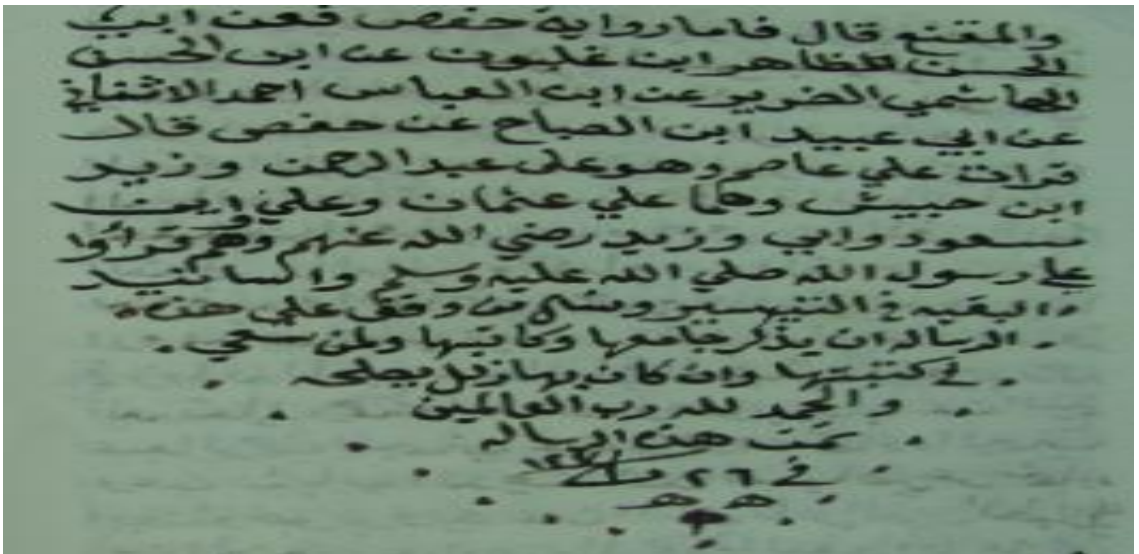 والمقنع قال فاما رواية حفص فعن ابي
الحسن الطاهر ابن غلبون عن ابى الحسن
الهاشمي الضرير عن ابن العباس احمد الاشناني
عن ابي عبيد ابن الصباح عن حفص قال
قرات علي عاصم وهو على عبد الرحمن وزيد
ابن حبيش وهما علي عثمان وعلي وابن
مسعود وابي وزيد رضي الله عنهم وهم قرأوا
على رسول الله صلي الله عليه وسلم والسانيد
البقيه في التيسير وسئل من وقف علي هذه
الرساله ان يذكر جامعها وكاتبها ولمن سعي
في كتبتها وان كان بها زلل يصلحه
والحمد لله رب العالمين
تمت هذه الرساله
في ٢٦
هـ هـ